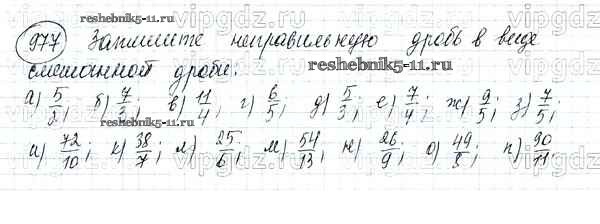 reshebnik5-11.ru
vipgdz.ru
977 Запишите неправильную дробь в виде
смешанной дроби:
reshebnik5-11.ru
а) 5/2; б) 7/3; в) 11/4; г) 6/5; д) 5/3; е) 7/4; ж) 9/5; з) 7/5;
reshebnik5-11.ru
и) 72/10; к) 38/7; л) 25/6; м) 54/13; н) 26/9; о) 49/5; п) 90/11
vipgdz.ru